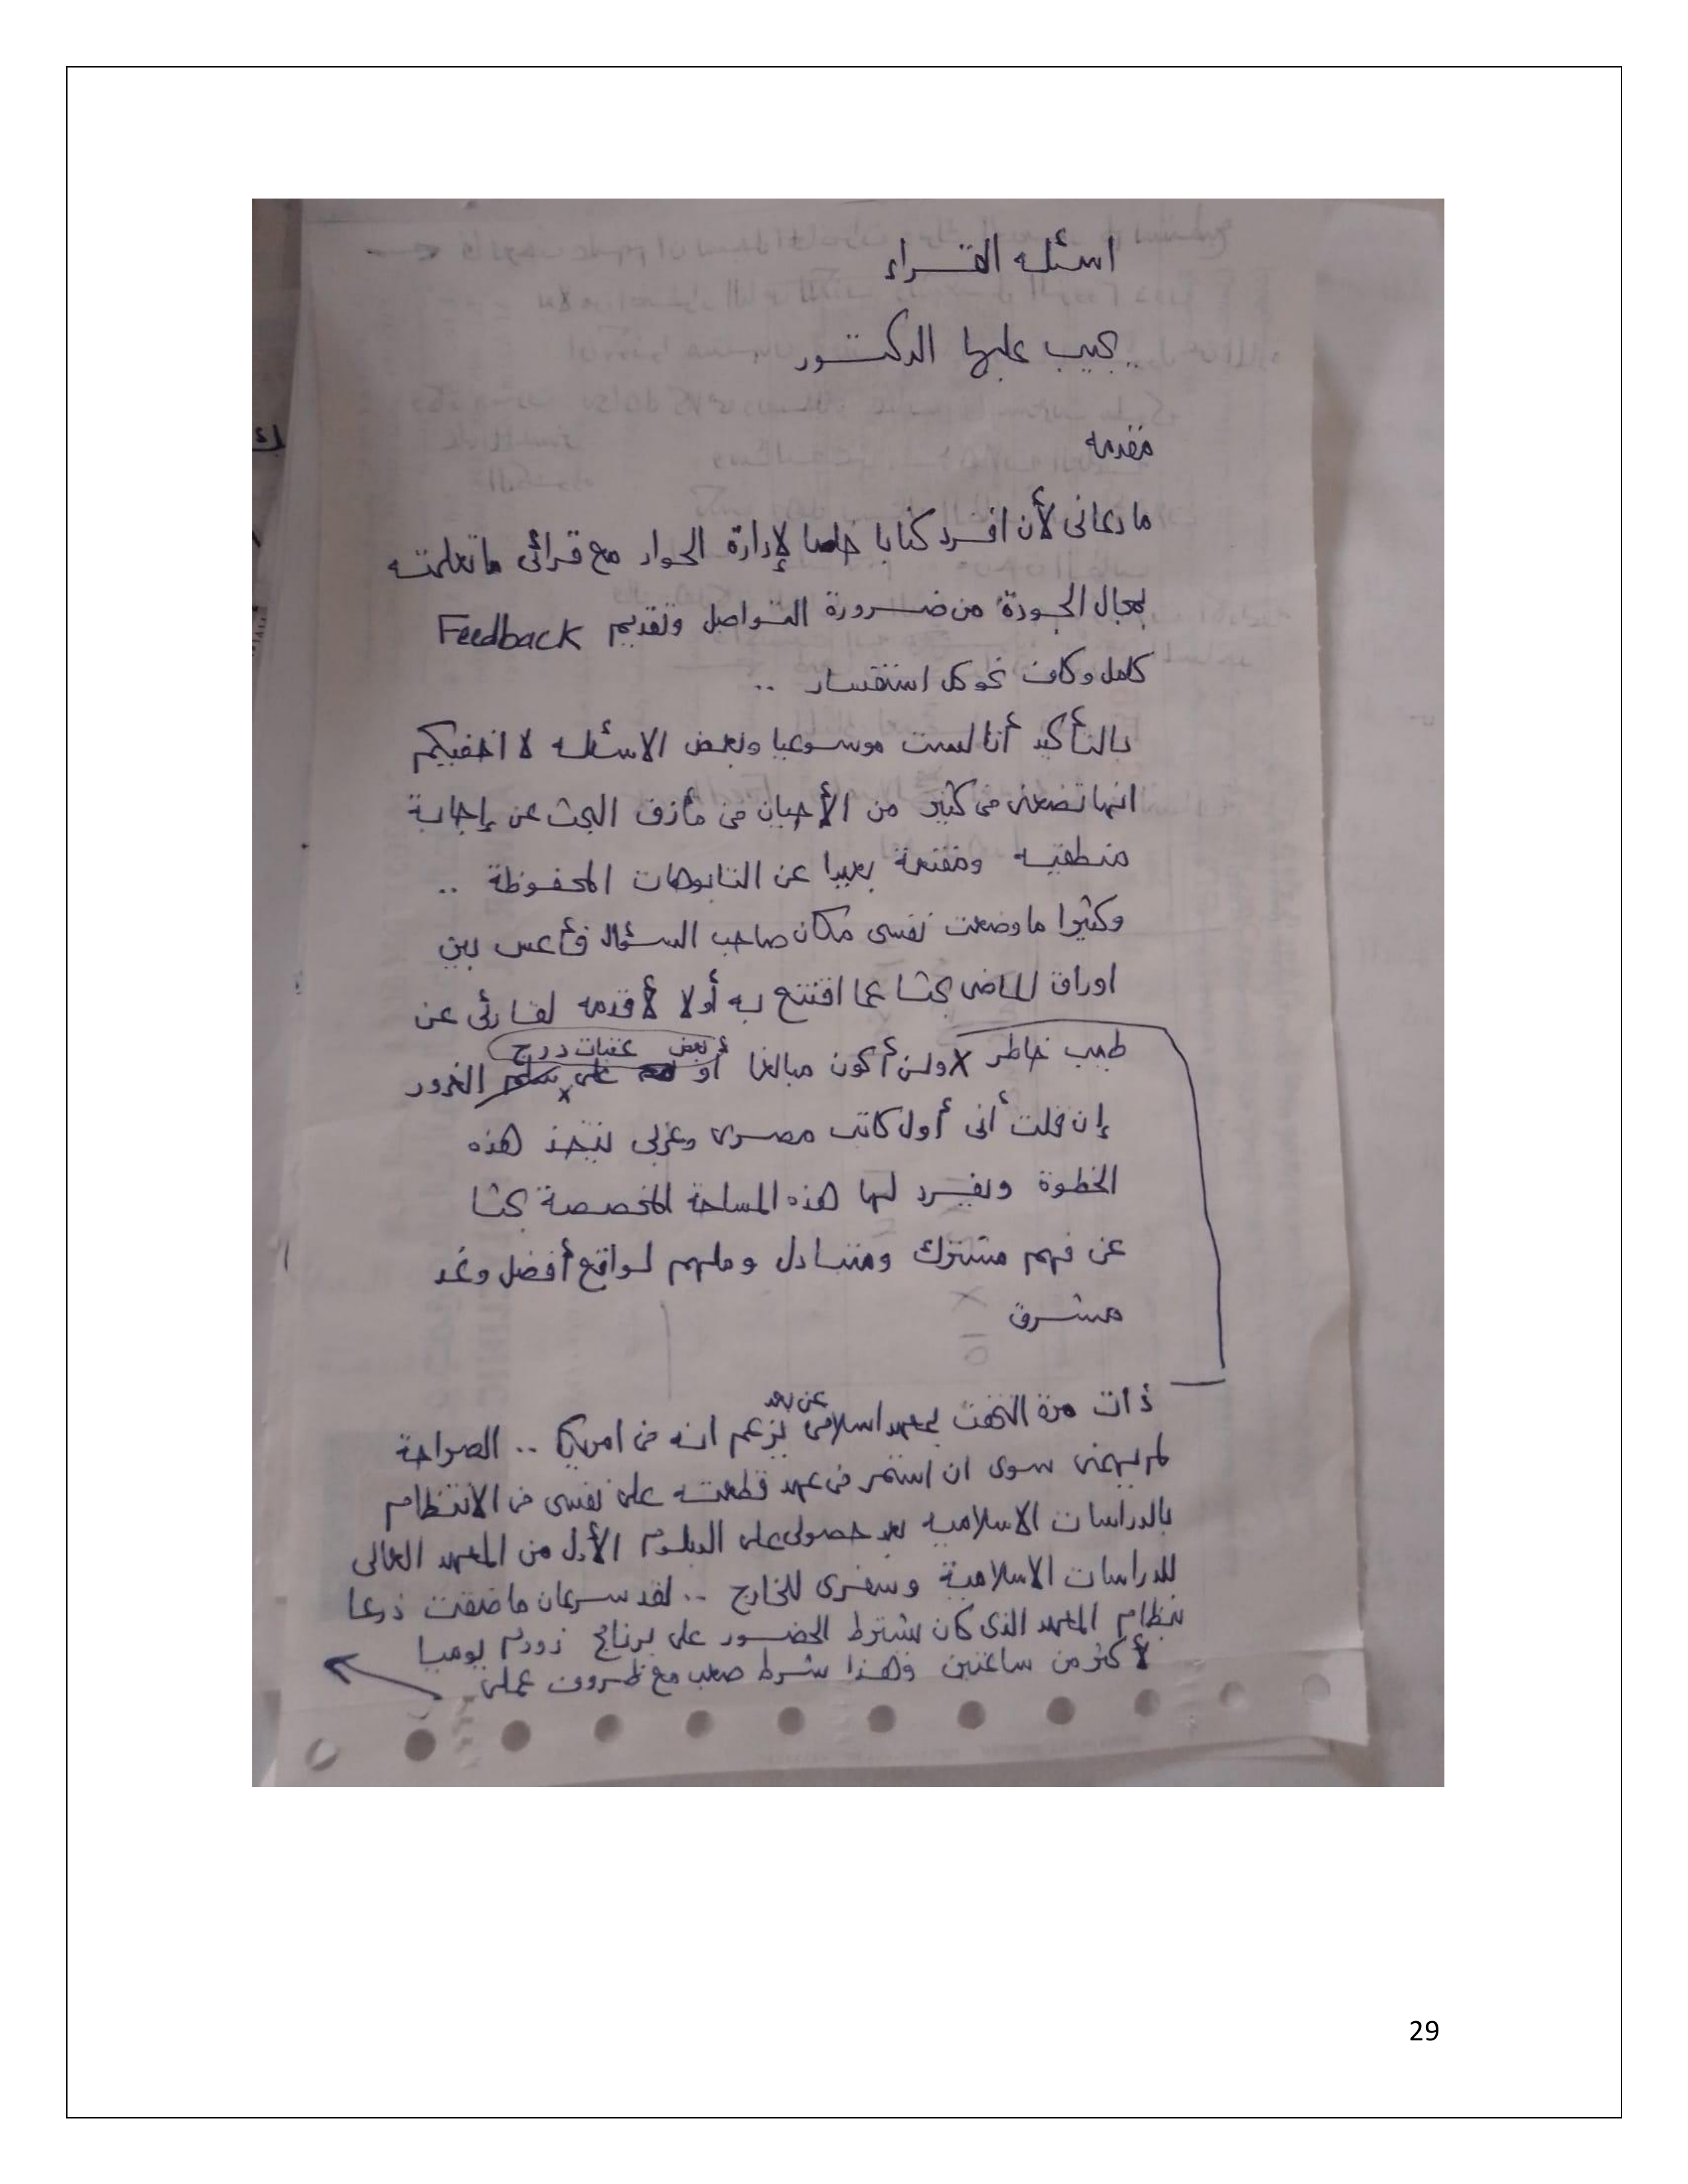 اسئله القـــراء
يجيب عليها الدكتـــور
مقدمه
ما دعانى لأن افرد كتابا خاصا لإدارة الحوار مع قرائى ما تعلمته
بمجال الجودة من ضرورة التواصل وتقديم Feedback
كامل وكاف نحو كل استفسار ..
بالتأكيد أنا لست موسوعيا وبعض الاسئله لا اخفيكم
انها تضعنى فى كثير من الأحيان فى مأزق البحث عن إجابة
منطقيه ومقنعة بعيدا عن التابوهات المحفوظة ..
وكثيرا ما وضعت نفسى مكان صاحب السؤال فأعس بين
اوراق الماضى بحثا عما اقتنع به أولا لأقدمه لقارئى عن
طيب خاطر ولن أكون مبالغا أو بعض عتبات درج الغرور
إن قلت أنى أول كاتب مصرى وعربى يتخذ هذه
الخطوة ويفرد لها هذه المساحة المخصصة بحثا
عن فهم مشترك ومتبادل وملهم لواقع أفضل وغد
مشرق
ذات مرة التحقت بمعهد اسلامى عن بعد يزعم انه فى امريكا .. الصراحة
لم يهمنى سوى ان استمر فى عهد قطعته على نفسى فى الانتظام
بالدراسات الاسلاميه بعد حصولى على الدبلوم الأول من المعهد العالى
للدراسات الاسلامية وسفرى للخارج .. لقد سرعان ما ضقت ذرعا
بنظام المعهد الذى كان يشترط الحضور على برنامج زووم يوميا
لأكثر من ساعتين وهذا شرط صعب مع ظروف عملى
29